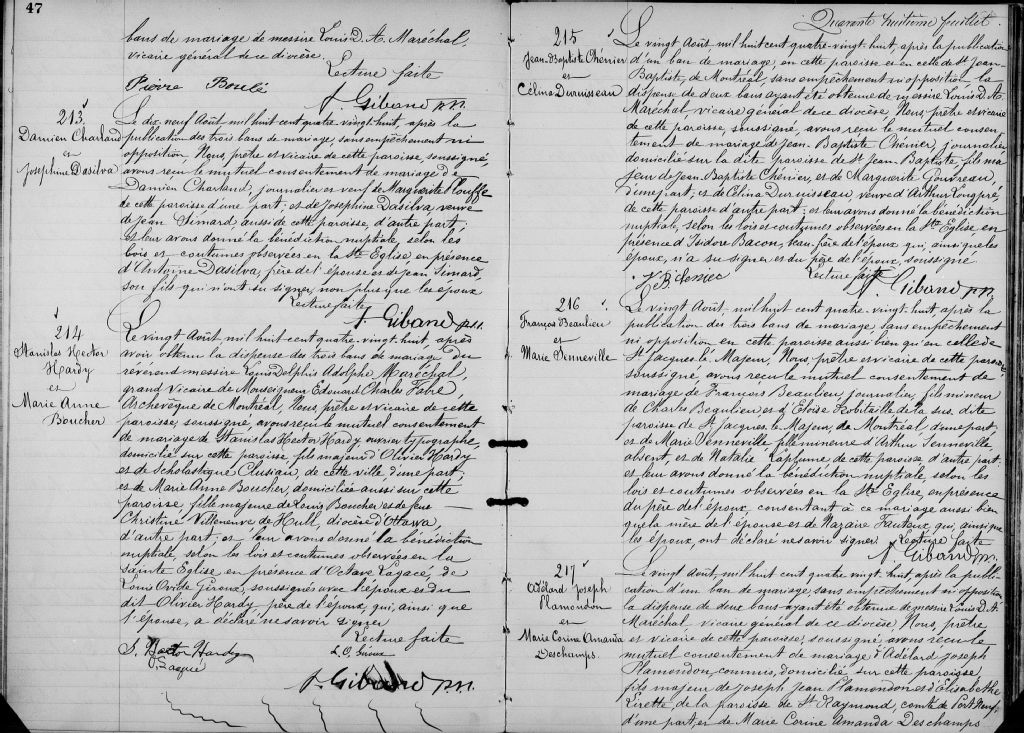 47
bans de mariage de messire Louis D. A. Maréchal,
vicaire général de ce diocèse.
Lecture faite
Pierre Boulé
J. Giband ptr.
213
Damien Charland
et
Josephine Dasilva
Le dix neuf Août mil huit cent quatre vingt huit, après la
publication des trois bans de mariage, sans empêchement ni
opposition, Nous, prêtre et vicaire de cette paroisse, soussigné,
avons reçu le mutuel consentement de mariage de
Damien Charland, journalier et veuf de Marguerite Plouffe
de cette paroisse d'une part; et de Josephine Dasilva, veuve
de Jean Simard, aussi de cette paroisse, d'autre part;
et leur avons donné la bénédiction nuptiale, selon les
lois et coutumes observées en la Ste Eglise en présence
d'Antoine Dasilva, père de l'épouse et de Jean Simard,
son fils qui n'ont su signer, non plus que les époux
Lecture faite
J. Giband ptr.
214
Stanislas Hector
Hardy
et
Marie Anne
Boucher
Le vingt Août, mil huit cent quatre-vingt-huit, après
avoir obtenu la dispense des trois bans de mariage du
reverend messire Louis Delphis Adolphe Maréchal,
grand Vicaire de Monseigneur Edouard Charles Fabre,
Archevêque de Montréal, Nous, prêtre et vicaire de cette
paroisse, soussigné, avons reçu le mutuel consentement
de mariage de Stanislas Hector Hardy ouvrier typographe,
domicilié sur cette paroisse, fils majeur d'Olivier Hardy
et de Scholastique Clusiau, de cette ville, d'une part,
et de Marie Anne Boucher, domiciliée aussi sur cette
paroisse, fille majeure de Louis Boucher et de feue
Christine Villeneuve de Hull, diocèse d'Ottawa,
d'autre part; et leur avons donné la bénédiction
nuptiale, selon les lois et coutumes observées en la
Sainte Eglise en présence d'Octave Lagacé, de
Louis Ovide Giroux, soussignés avec l'époux et du
dit Olivier Hardy père de l'époux, qui, ainsi que
l'épouse, a déclaré ne savoir signer
Lecture faite
S. Hector Hardy
L. O. Giroux
O. Lagacé
J. Giband ptr.
Quarante huitième feuillet.
215
Jean-Baptiste Chénier
et
Célina Durnisseau
Le vingt Août, mil huit cent quatre-vingt-huit, après la publication
d'un ban de mariage, en cette paroisse et en celle de St Jean-
Baptiste, de Montréal, sans empêchement ni opposition la
dispense de deux bans ayant été obtenue de messire Louis D. A.
Maréchal, vicaire général de ce diocèse, Nous, prêtre et vicaire
de cette paroisse, soussigné, avons reçu le mutuel consen-
tement de mariage de Jean-Baptiste Chénier, journalier
domicilié sur la dite paroisse de St Jean-Baptiste, fils ma-
jeur de Jean-Baptiste Chénier, et de Marguerite Gouvreau
d'une part; et de Célina Durnisseau, veuve d'Arthur Longpré,
de cette paroisse d'autre part; et leur avons donné la bénédiction
nuptiale, selon les lois et coutumes observées en la Ste Eglise, en
présence d'Isidore Bacon, beau-frère de l'époux qui, ainsi que les
époux, n'a su signer et du père de l'époux, soussigné
Lecture faite
J. Giband ptr.
216
François Beaulieu
et
Marie Senneville
Le vingt Août, mil huit cent quatre-vingt-huit, après la
publication des trois bans de mariage sans empêchement
ni opposition en cette paroisse aussi bien qu'en celle de
St Jacques le Majeur, Nous, prêtre et vicaire de cette paroisse
soussigné, avons reçu le mutuel consentement de
mariage de François Beaulieu journalier, fils mineur
de Charles Beaulieu et d'Eloise Robitaille de la sus dite
paroisse de St Jacques le Majeur, de Montréal d'une part;
et de Marie Senneville, fille mineure d'Arthur Senneville,
absent, et de Natalie Laplume de cette paroisse, d'autre part;
et leur avons donné la bénédiction nuptiale, selon les
lois et coutumes observées en la Ste Eglise, en présence
du père de l'époux, consentant à ce mariage aussi bien
que la mère de l'épouse et de Nazaire Fauteux, qui, ainsi que
les époux, ont déclaré ne savoir signer. Lecture faite
J. Giband ptr.
217
Adélard Joseph
Plamondon
et
Marie Corine Amanda
Deschamps.
Le vingt Août, mil huit cent quatre vingt huit, après la publi-
cation d'un ban de mariage, sans empêchement ni opposition
la dispense de deux bans ayant été obtenue de messire Louis D. A.
Maréchal vicaire général de ce diocèse, Nous, prêtre
et vicaire de cette paroisse, soussigné, avons reçu le
mutuel consentement de mariage d'Adélard Joseph
Plamondon, commis, domicilié sur cette paroisse,
fils majeur de Joseph Jean Plamondon et d'Elisabethe
Lirette, de la paroisse de St Raymond, comté de Port Neuf,
d'une part, et de Marie Corine Amanda Deschamps